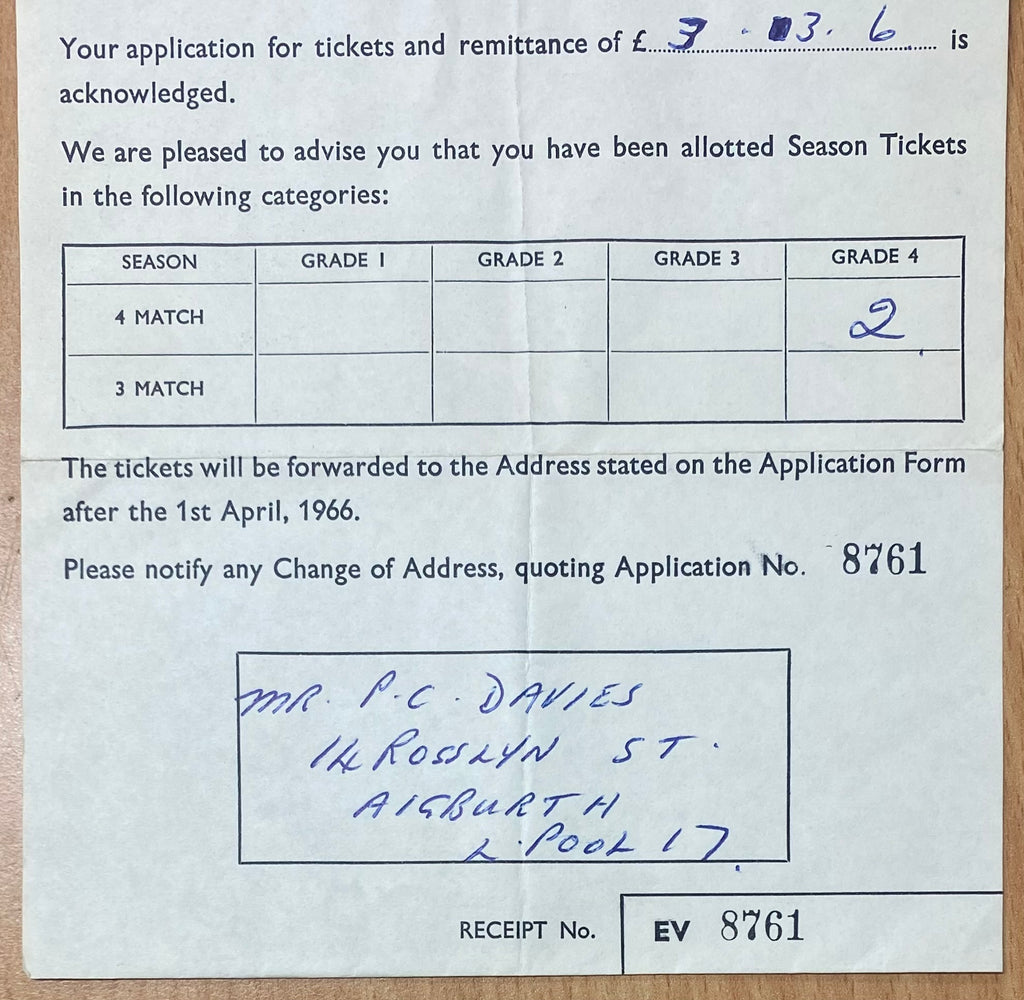 Your application for tickets and remittance of £ 3 . 03. 6 is
acknowledged.
We are pleased to advise you that you have been allotted Season Tickets
in the following categories:
SEASON GRADE 1 GRADE 2 GRADE 3 GRADE 4
4 MATCH 2
3 MATCH
The tickets will be forwarded to the Address stated on the Application Form
after the 1st April, 1966.
Please notify any Change of Address, quoting Application No. 8761
MR. P.C. DAVIES
14 ROSSLYN ST.
AIGBURTH
L.POOL 17.
RECEIPT No. EV 8761